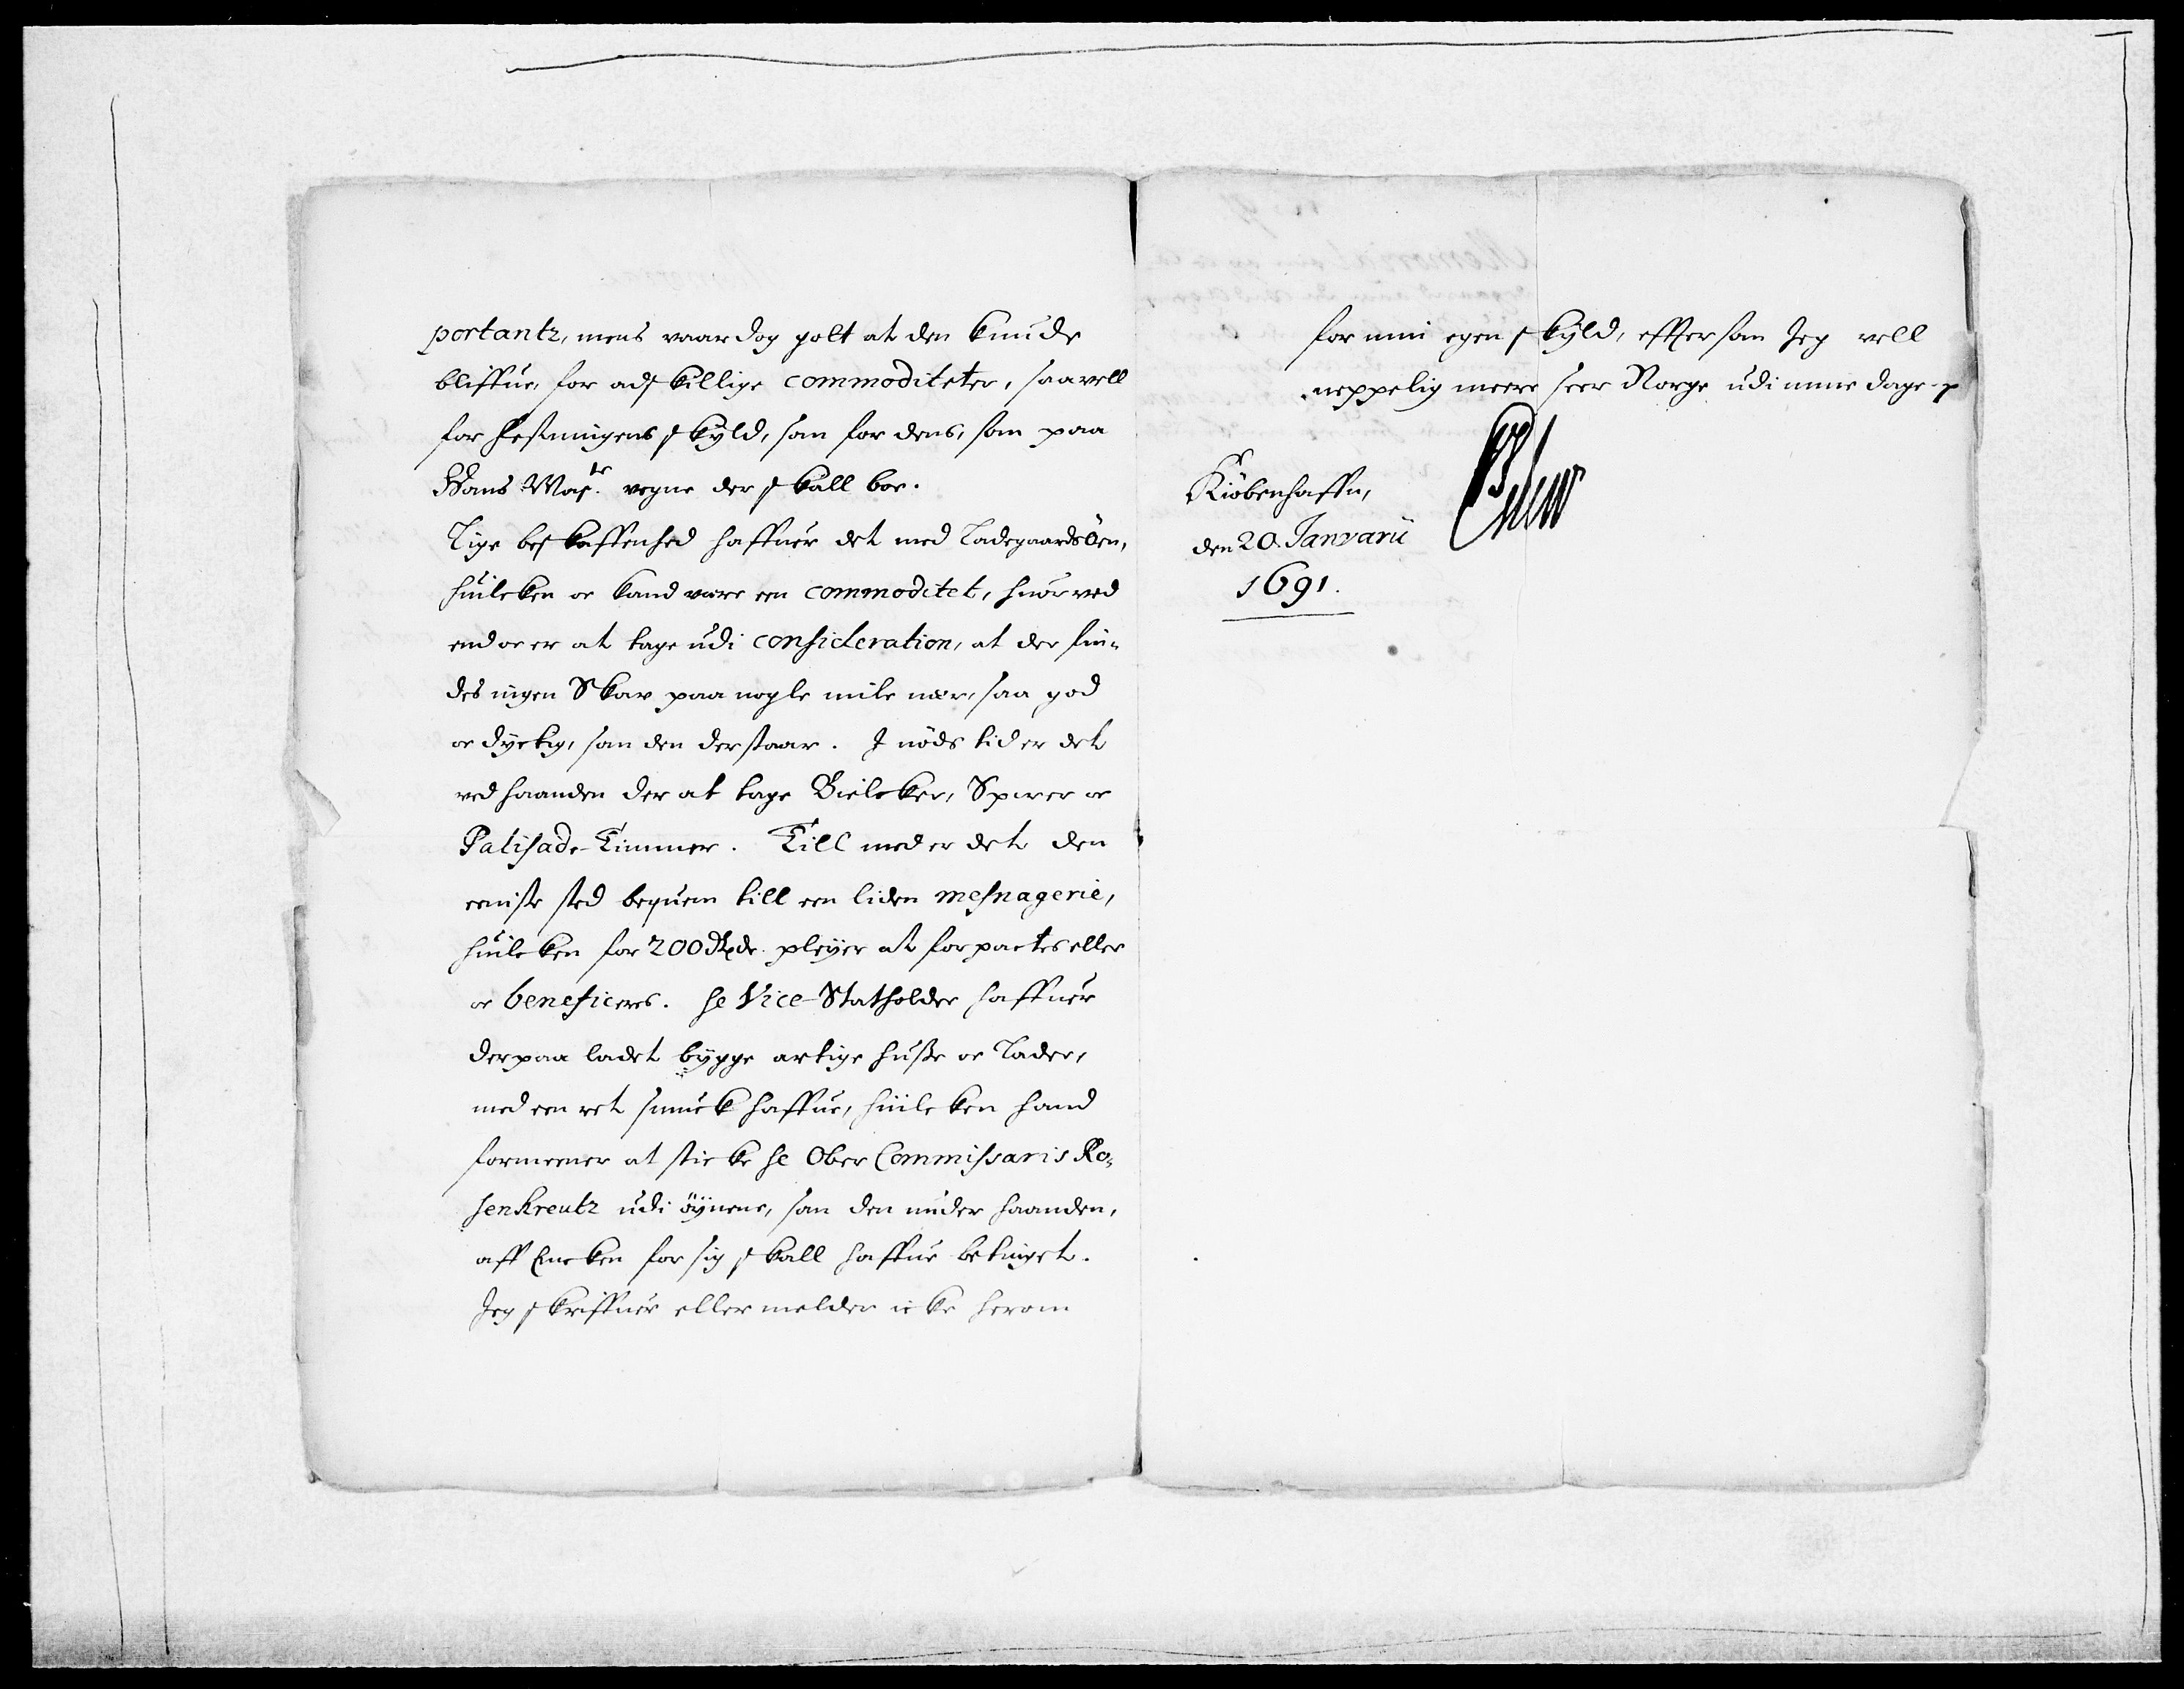 portantz, mens vaar dog golt at den kunde
bliffue, for adskillige commoditeter, saavell
for Festningens skyld, som for dens, som paa
Hans Majts vegne der skall boe.
Lige beskaffenhed haffuer det med LadegaardsÖen,
huilcken oc kand være een commoditet, huorved
end oc er at tage udi consideration, at der fin-
des ingen Skov paa nogle mile nær, saa god
oc dyctig, som den der staar. I nöds tid er det
ved haanden der at tage Bielcker, Sparer oc
Palisade-Timmer. Till med er det den
eeniste sted beqvem till een liden mesnagerie,
huilcken for 200 Rdr. pleyer at forpactes eller
oc beneficeres. Hr Vice-Statholder haffuer
derpaa ladet bygge artige huse oc Lader,
med een ret smuck haffue, huilcken hand
formeener at sticke Hr Ober Commissaris Ro-
senkreutz udi öynene, som den under haanden,
aff Encken for sig skall haffue betinget.
Jeg skriffuer eller melder icke herom
for min egen skyld, effter som Jeg vell
neppelig meere seer Norge udi mine dage
Kiöbenhaffn,
den 20. Janvarii
1691.